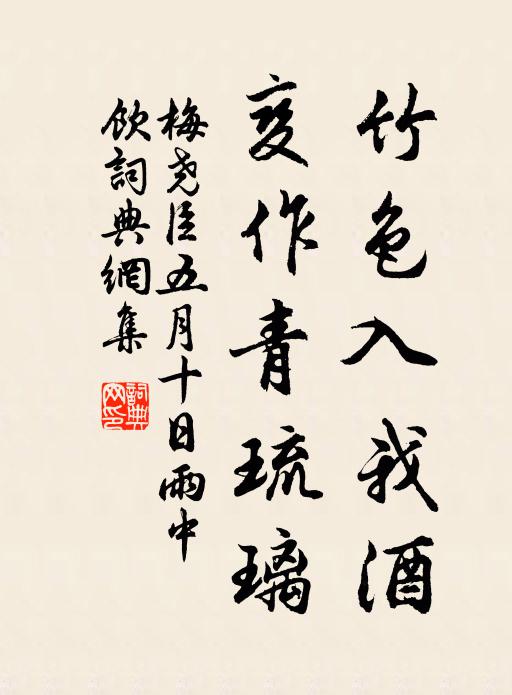 竹色入我酒
变作青琉璃
梅尧臣五月十日雨中
饮詞典網集
詞典
网印